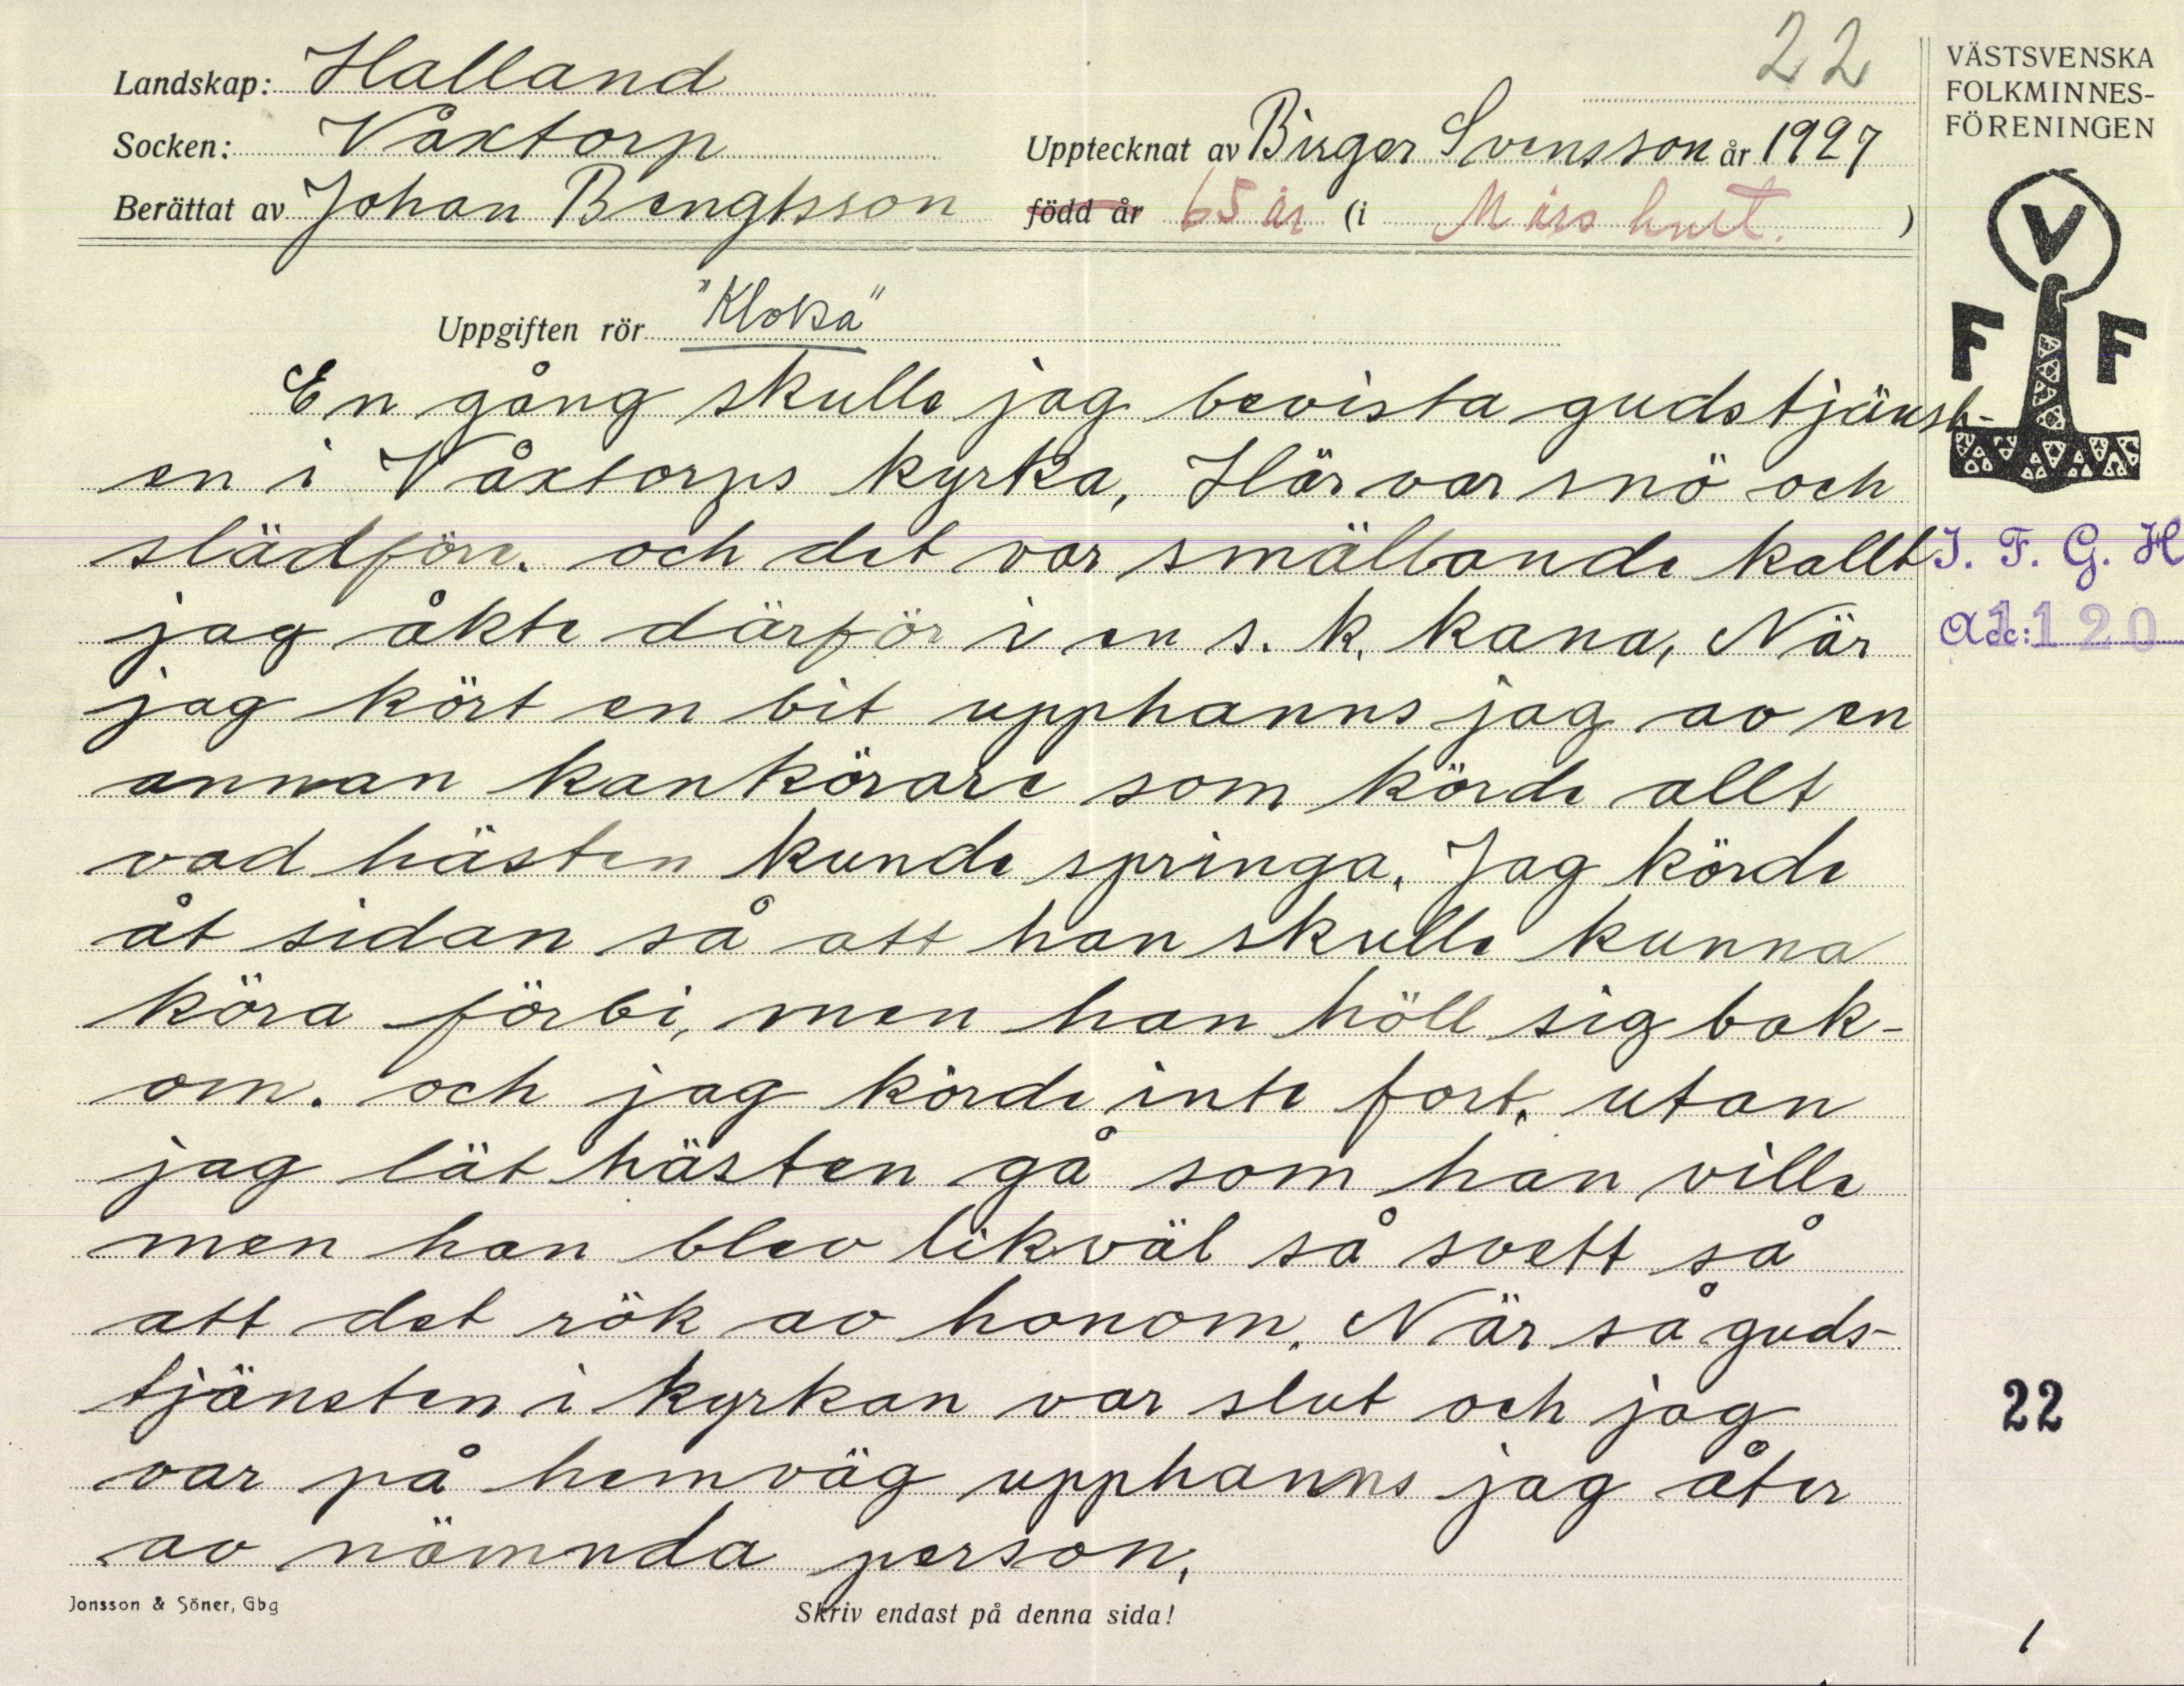 22
Landskap: Halland
Socken: Våxtorp
Upptecknat av Birger Svensson år 1927
Berättat av Johan Bengtsson
född år 65 år (i Mårshult.)
VÄSTSVENSKA
FOLKMINNES-
FÖRENINGEN
V
F F
Uppgiften rör "Kloka"
En gång skulle jag bevista gudstjänst-
en i Våxtorps kyrka, Här var snö och
slädföre. och det var smällande kallt
jag åkte därför i en s. k. kana, När
jag kört en bit upphanns jag av en
annan kankörare som körde allt
vad hästen kunde springa. Jag körde
åt sidan så att han skulle kunna
köra förbi, men han höll sig bak-
om. och jag körde inte fort, utan
jag lät hästen gå som han ville
men han blev likväl så svett så
att det rök av honom. När så guds-
tjänsten i kyrkan var slut och jag
var på hemväg upphanns jag åter
av nämnda person,
I. F. G. H
Acc: 1120
22
Jonsson & Söner, Gbg
Skriv endast på denna sida!
1